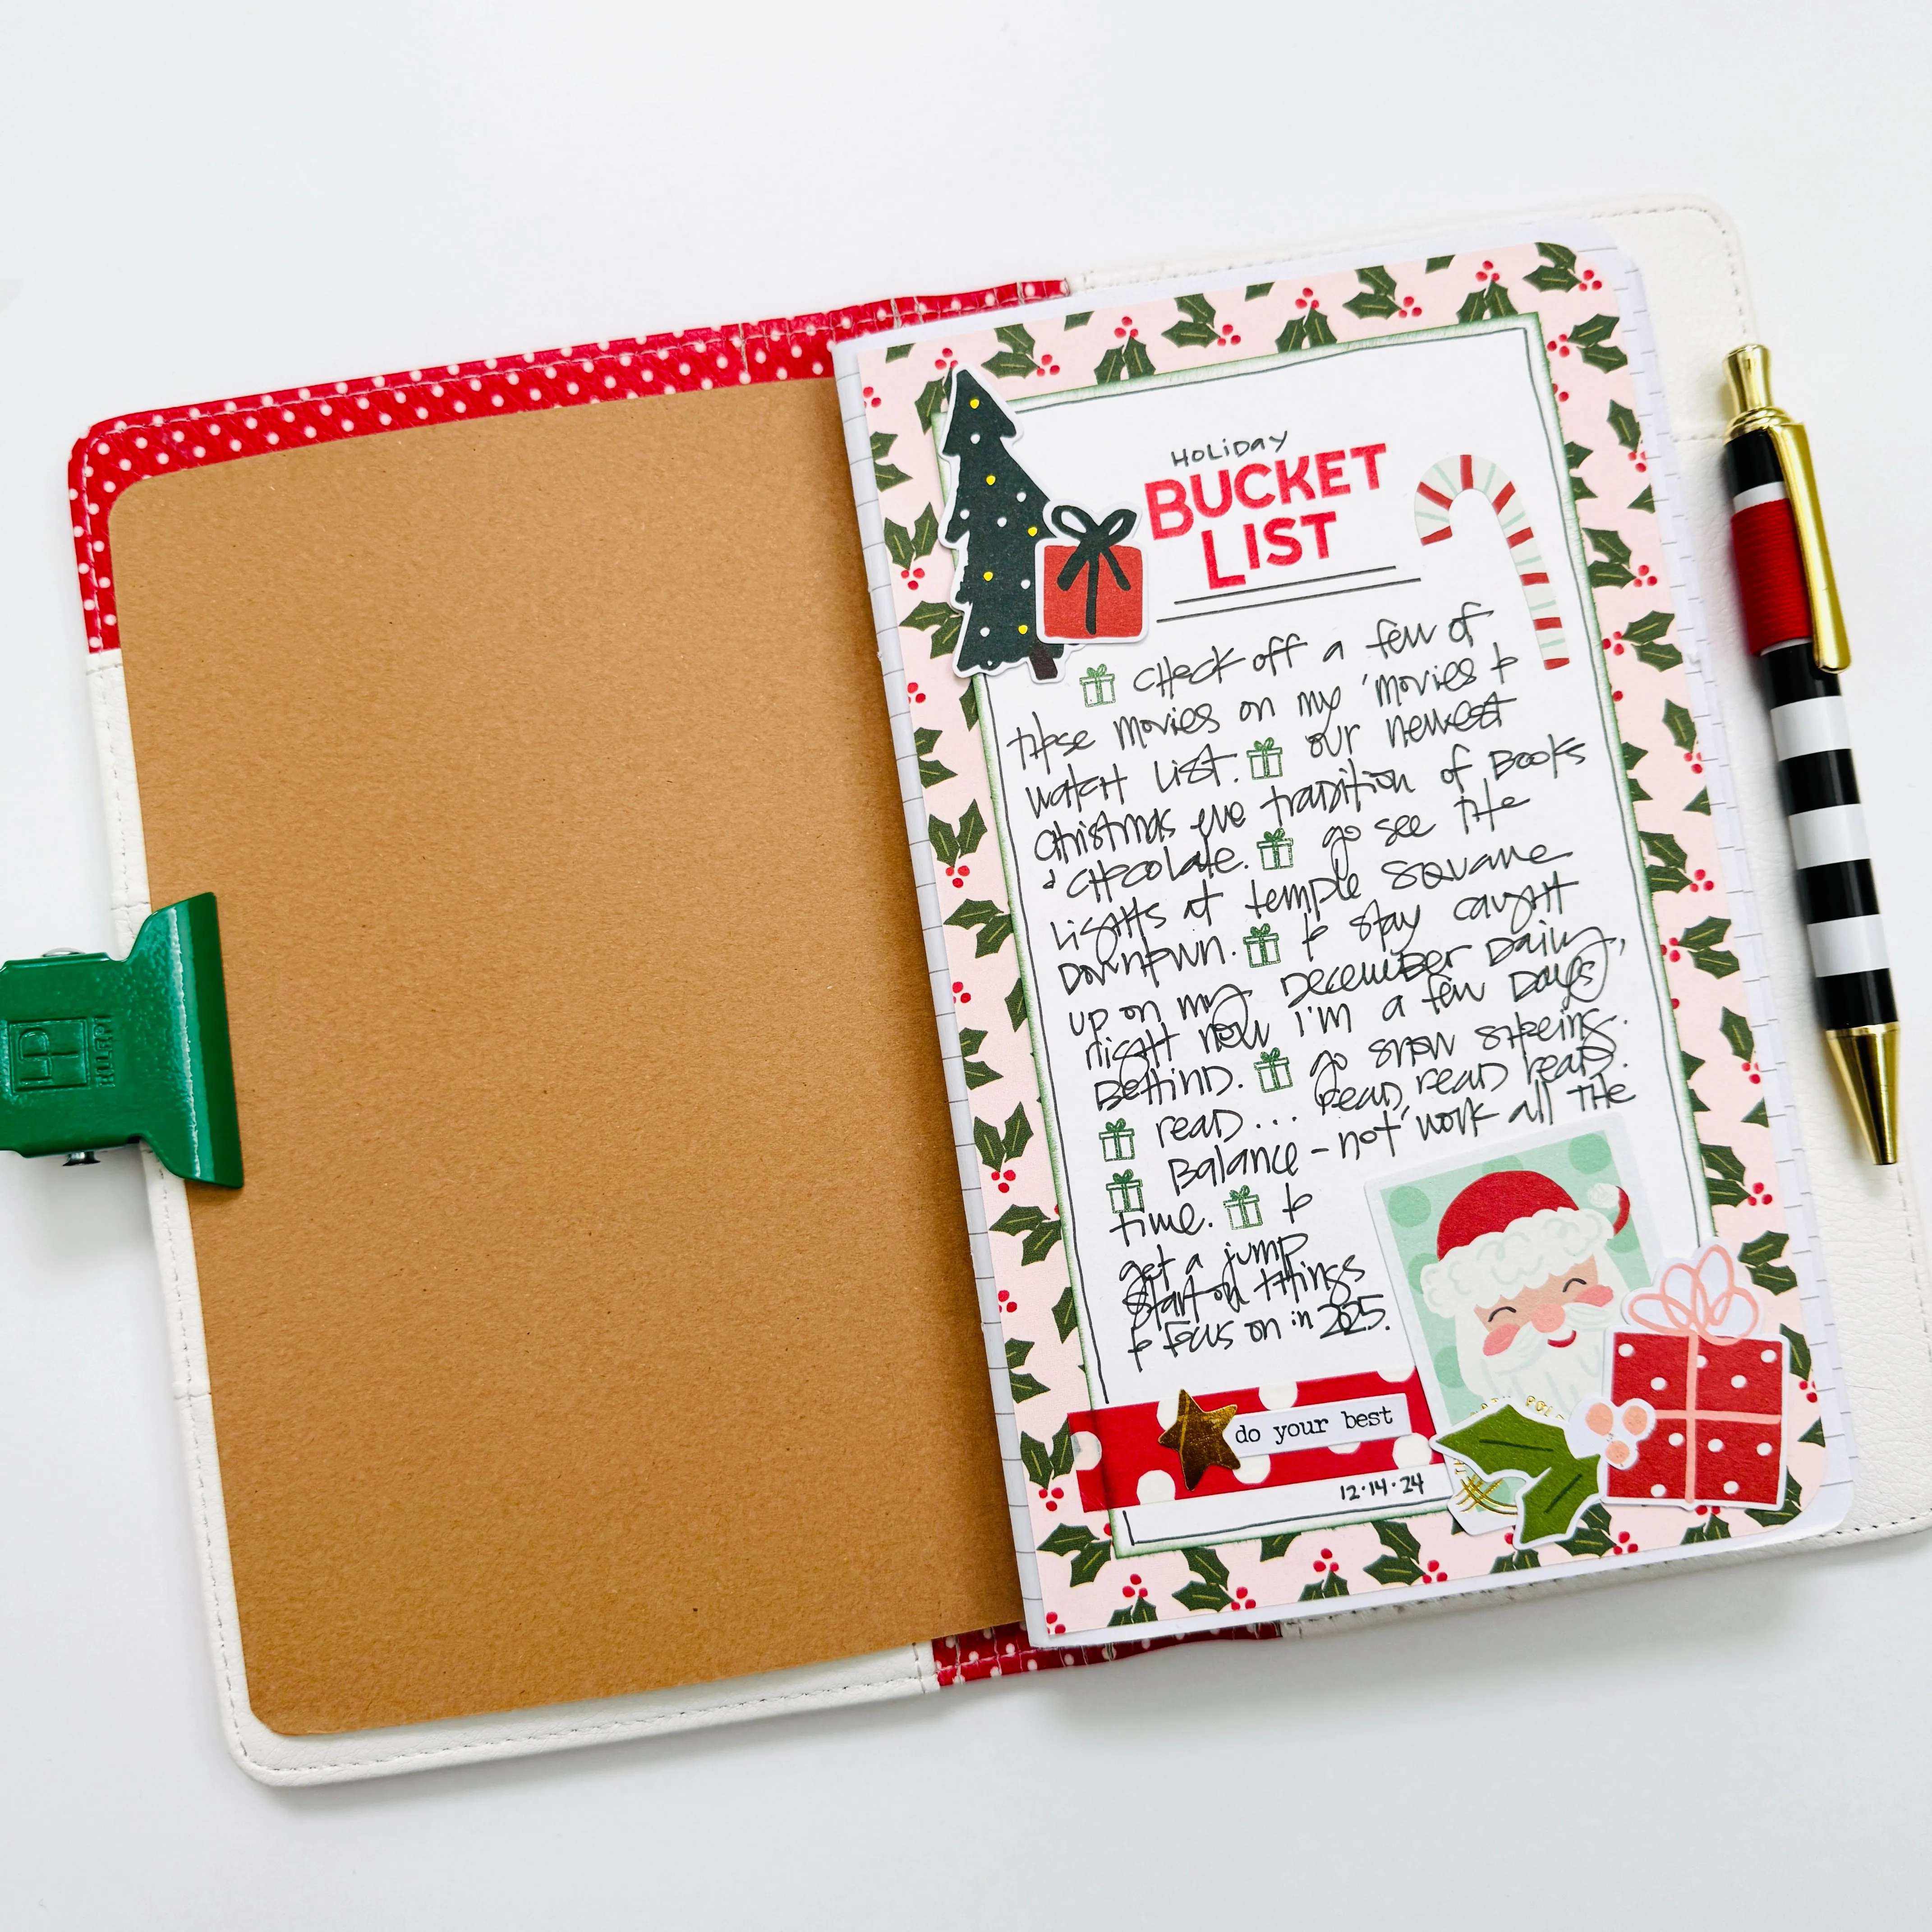 HOLiDAY
BUCKET
LIST
CHECK off a few of
these movies on my 'movies to
watch list'.
our newest
Christmas eve tradition of Books
& chocolate.
go see the
Lights at temple square
Downtown.
to stay caught
up on my December Daily,
right now I'm a few Days
Behind.
go snow shoeing.
read... read, read read.
Balance - not work all the
time.
to
get a jump
start on things
to focus on in 2025.
do your best
12.14.24